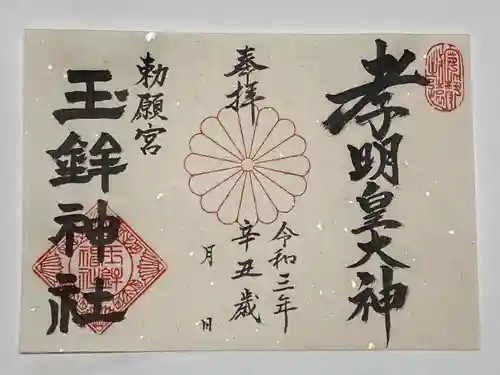 孝明皇大神
奉拝
令和三年
辛丑歳
月　日
勅願宮
玉鉾神社